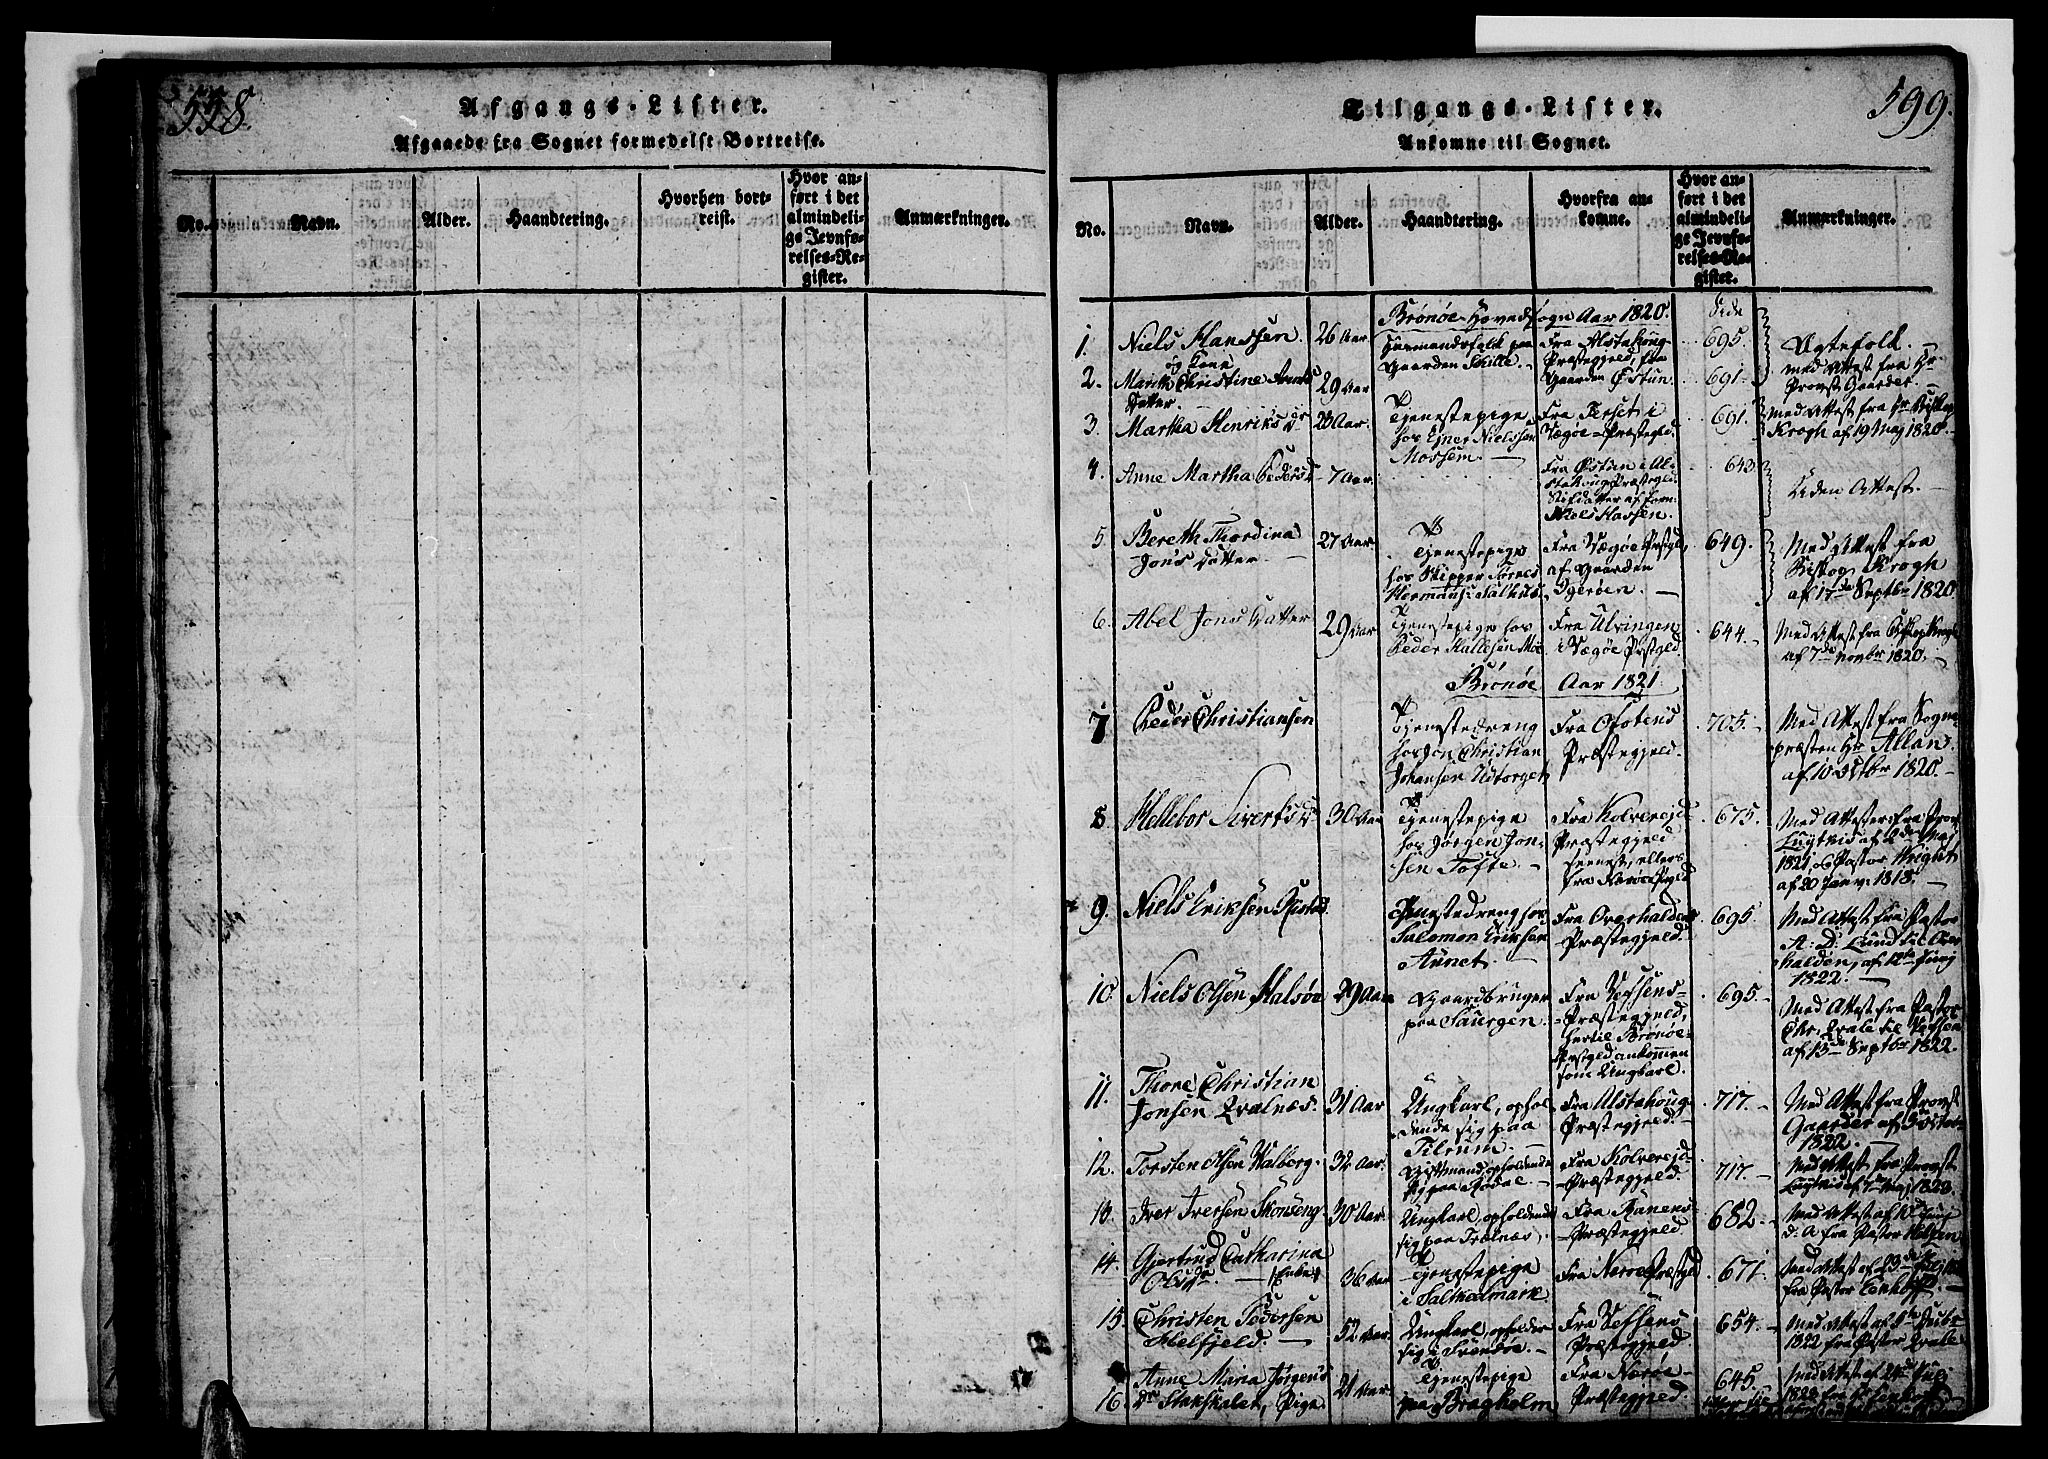 558.
Afgangs-Lister.
Afgaaede fra Sognet formedelst Bortreise.
No.
Navn.
Alder.
Haandtering.
Hvorhen bort-
reist.
Hvor an-
ført i det
almindeli-
ge Jevnfø-
relses-Re-
gister.
Anmærkninger.
599.
Tilgangs-Lister.
Ankomne til Sognet.
No.
Navn.
Alder.
Haandtering.
Hvorfra an-
komne.
Hvor an-
ført i det
almindeli-
ge Jevnfø-
relses-Re-
gister.
Anmærkninger.
Brønøe Hovedsogn Aar 1820.
Side
1.
Niels Hanssen
og Kone
26 Aar
Gaarden
Fra Alstahoug
Præstegjeld, fra
Gaarden Østun.
695.
Ægtefolk.
med Attest fra Hr
Provst Gaarder.
2.
Marith Christine Arnts
Datter.
29 Aar
691.
3.
Martha Henriks Dr
20 Aar.
Tjenestepige
hos Ejner Nielssen
Mossem.
Fra Terset i
Vægøe-Præstegld.
691.
Med Attest fra Hr Biskop
Krogh af 19 Maj 1820.
4.
Anne Martha Peders D
7 Aar.
Fra Østun i Al-
stahoug Præstegld.
Stifdatter af forn.
Niels Hassen.
643
Uden Attest.
5
Bereth Thordina
Jons Datter
27 Aar
Tjenestepige
hos Skipper Sørres
Fra Vægøe Præstgl.
af Gaarden
Igerøen.
649.
Med Attest fra
Biskop Krogh
af 17de Septbr 1820
6.
Abel Jons Datter
29 Aar
Tjenestepige hos
Peder Hallesen Moe
Fra Ulvingen
i Vægøe Præstgld.
644.
Med Attest fra Biskop Krogh
af 7de Novbr 1820.
Brønøe Aar 1821
7
Peder Christiansen
Tjenestedreng
hos Jon Christian
Johansen Uttorget
Fra Ofotens
Præstegjeld.
705.
Med Attest fra Sogne-
præsten Hr Allan.
af 10 Octbr 1820.
8.
Hellebor Siverts Dr
30 Aar
Tjenestepige
hos Jørgen Jon-
sen Tofte.
Fra Kolvereid
Præstegjeld
senest, ellers
fra Nærøe Prstgld
675.
Med Attester fra Prov
1821, og Pastor Wright
af 20 Janv. 1818.
9.
Niels Eriksen
Tjenestedreng hos
Salomon Eriksen
Aunet.
Fra Overhaldens
Præstegjeld.
695.
Med Attest fra Pastor
A. D. Lund til Over-
halden, af 12te Junj
1822.
10
Niels Olsen Halsøe
29 Aar
Gaardbruger
paa Saurgen.
Fra Vefsens-
Præstegjeld,
hertil Brønøe-
Prstgld ankommen
som Ungkarl.
695.
Med Attest fra Pastor
Chr. Qvale til Vefsen
af 13de Septbr 1822.
11.
Thore Christian
Jonsen Qvalnæs.
31 Aar
Ungkarl, ophol-
dende sig paa
Tilrum.
Fra Alstahoug-
Præstegjeld.
717.
Med Attest fra Provst
Gaarder af 3 Octob-
1822.
12.
Torsten Olsen Walberg.
32 Aar.
Giftmand, opholdende
sig paa Rødal.
Fra Kolvereid-
Præstegjeld.
717.
Med Attest fra Provst
13
Iver Iversen Skonseng
30 Aar.
Ungkarl, opholdende
sig paa Trælnæs.
Fra Ranens-
Præstegjeld.
682.
Med Attest af 10 Junj
d: A fra Pastor
14.
Gjertrud Catharina
Ols Dr
(Enke)
36 Aar
Tjenestepige
i Salhedmark.
Fra Nærøe Præstgld
671.
Med Attest af 23de
fra Pastor
15.
Christen Pedersen
Helfjeld.
52 Aar.
Ungkarl, opholder
sig i Trendre.
Fra Vefsens
Præstegjeld.
654.
Med Attest af
1822 fra Pastor Qvale
16.
Anne Maria Jørgens
Dr Pige
21 Aar
Tjenestepige
paa Bragholm
Fra Nærøe
Præstegjeld.
645.
Med Attest af